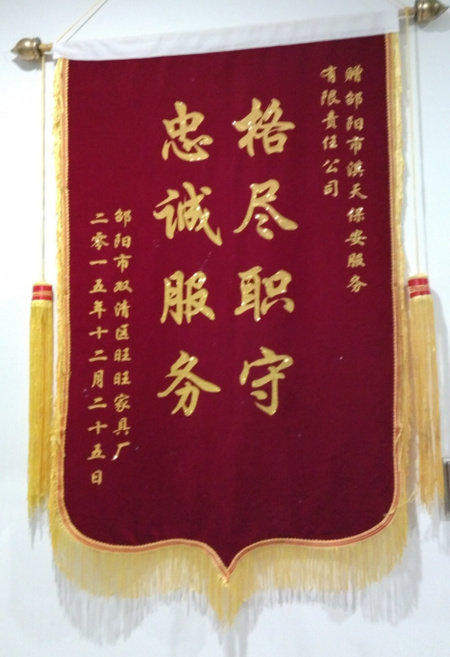 赠邵阳市淇天保安服务
有限责任公司
格尽职守
忠诚服务
邵阳市双清区旺旺家具厂
二零一五年十二月二十五日